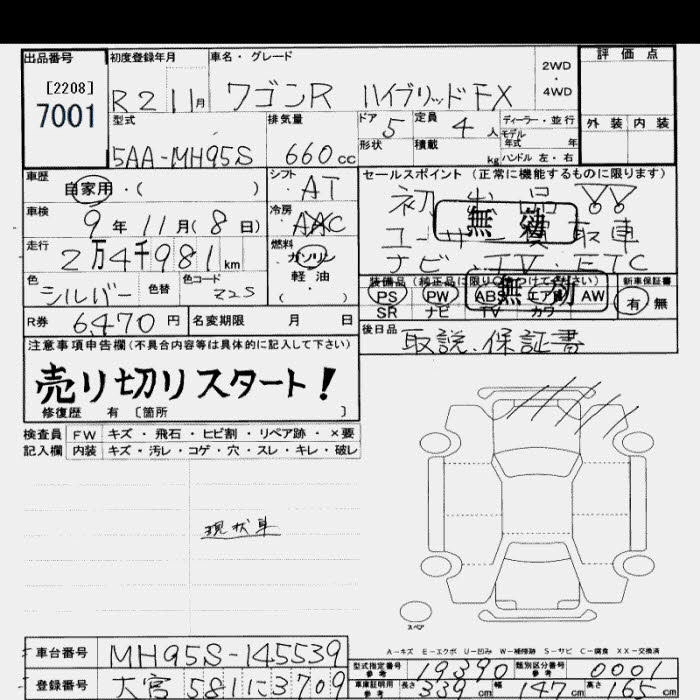 出品番号
[2208]
7001
初度登録年月
R2 11月
車名・グレード
ワゴンR ハイブリッドFX
2WD
・
4WD
評価点
外装 内装
型式
5AA-MH95S
排気量
660cc
ドア 5
形状
定員 4人
積載 kg
ディーラー・並行
モデル年式 年
ハンドル 左・右
車歴
自家用・( )
シフト
・AT
セールスポイント(正常に機能するものに限ります)
初出品!!
ユーザー買取車
ナビ TV ETC
無効
車検
9年11月(8日)
冷房
AAC
走行
2万4千981km
燃料
ガソリン
軽・油
( )
色
シルバー
色替
色コード
Z2S
装備品(純正品に限り○をつけてください)
PS PW ABS エアB AW
SR ナビ TV カワ
無効
新車保証書
有 無
R券 6470円
名変期限 月 日
後日品
取説、保証書
注意事項申告欄(不具合内容等は具体的に記入して下さい)
売り切りスタート!
修復歴 有 〔箇所 〕
検査員 FW キズ・飛石・ヒビ割・リペア跡・×要
記入欄 内装 キズ・汚レ・コゲ・穴・スレ・キレ・破レ
現状車
スペア
A-キズ E-エクボ U-凹み W-補修跡 S-サビ C-腐食 XX-交換済
車台番号 MH95S-145539
登録番号 大宮581に3709
型式指定番号 参考 19390
類別区分番号 参考 0001
車庫証明用 参考 長さ 339cm 幅 147cm 高さ 165cm